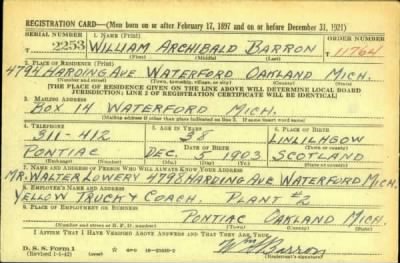 REGISTRATION CARD—(Men born on or after February 17, 1897 and on or before December 31, 1921)
SERIAL NUMBER 1. NAME (Print) ORDER NUMBER
2253 WILLIAM ARCHIBALD BARRON 11764
(First) (Middle) (Last)
2. PLACE OF RESIDENCE (Print)
4794 HARDING AVE WATERFORD OAKLAND MICH.
(Number and street) (Town, township, village, or city) (County) (State)
[THE PLACE OF RESIDENCE GIVEN ON THE LINE ABOVE WILL DETERMINE LOCAL BOARD
JURISDICTION; LINE 2 OF REGISTRATION CERTIFICATE WILL BE IDENTICAL]
3. MAILING ADDRESS
BOX 14 WATERFORD MICH.
(Mailing address if other than place indicated on line 2. If same insert word same)
4. TELEPHONE 5. AGE IN YEARS 6. PLACE OF BIRTH
311-412 38 LINLILHGOW
DATE OF BIRTH (Town or county)
PONTIAC DEC. 5 1903 SCOTLAND
(Exchange) (Number) (Mo.) (Day) (Yr.) (State or country)
7. NAME AND ADDRESS OF PERSON WHO WILL ALWAYS KNOW YOUR ADDRESS
MR. WALTER LOWERY 4798 HARDING AVE WATERFORD MICH.
8. EMPLOYER'S NAME AND ADDRESS
YELLOW TRUCK & COACH. PLANT #2
9. PLACE OF EMPLOYMENT OR BUSINESS
PONTIAC OAKLAND MICH.
(Number and street or R. F. D. number) (Town) (County) (State)
I AFFIRM THAT I HAVE VERIFIED ABOVE ANSWERS AND THAT THEY ARE TRUE.
D. S. S. Form 1
(Revised 1-1-42) Barron